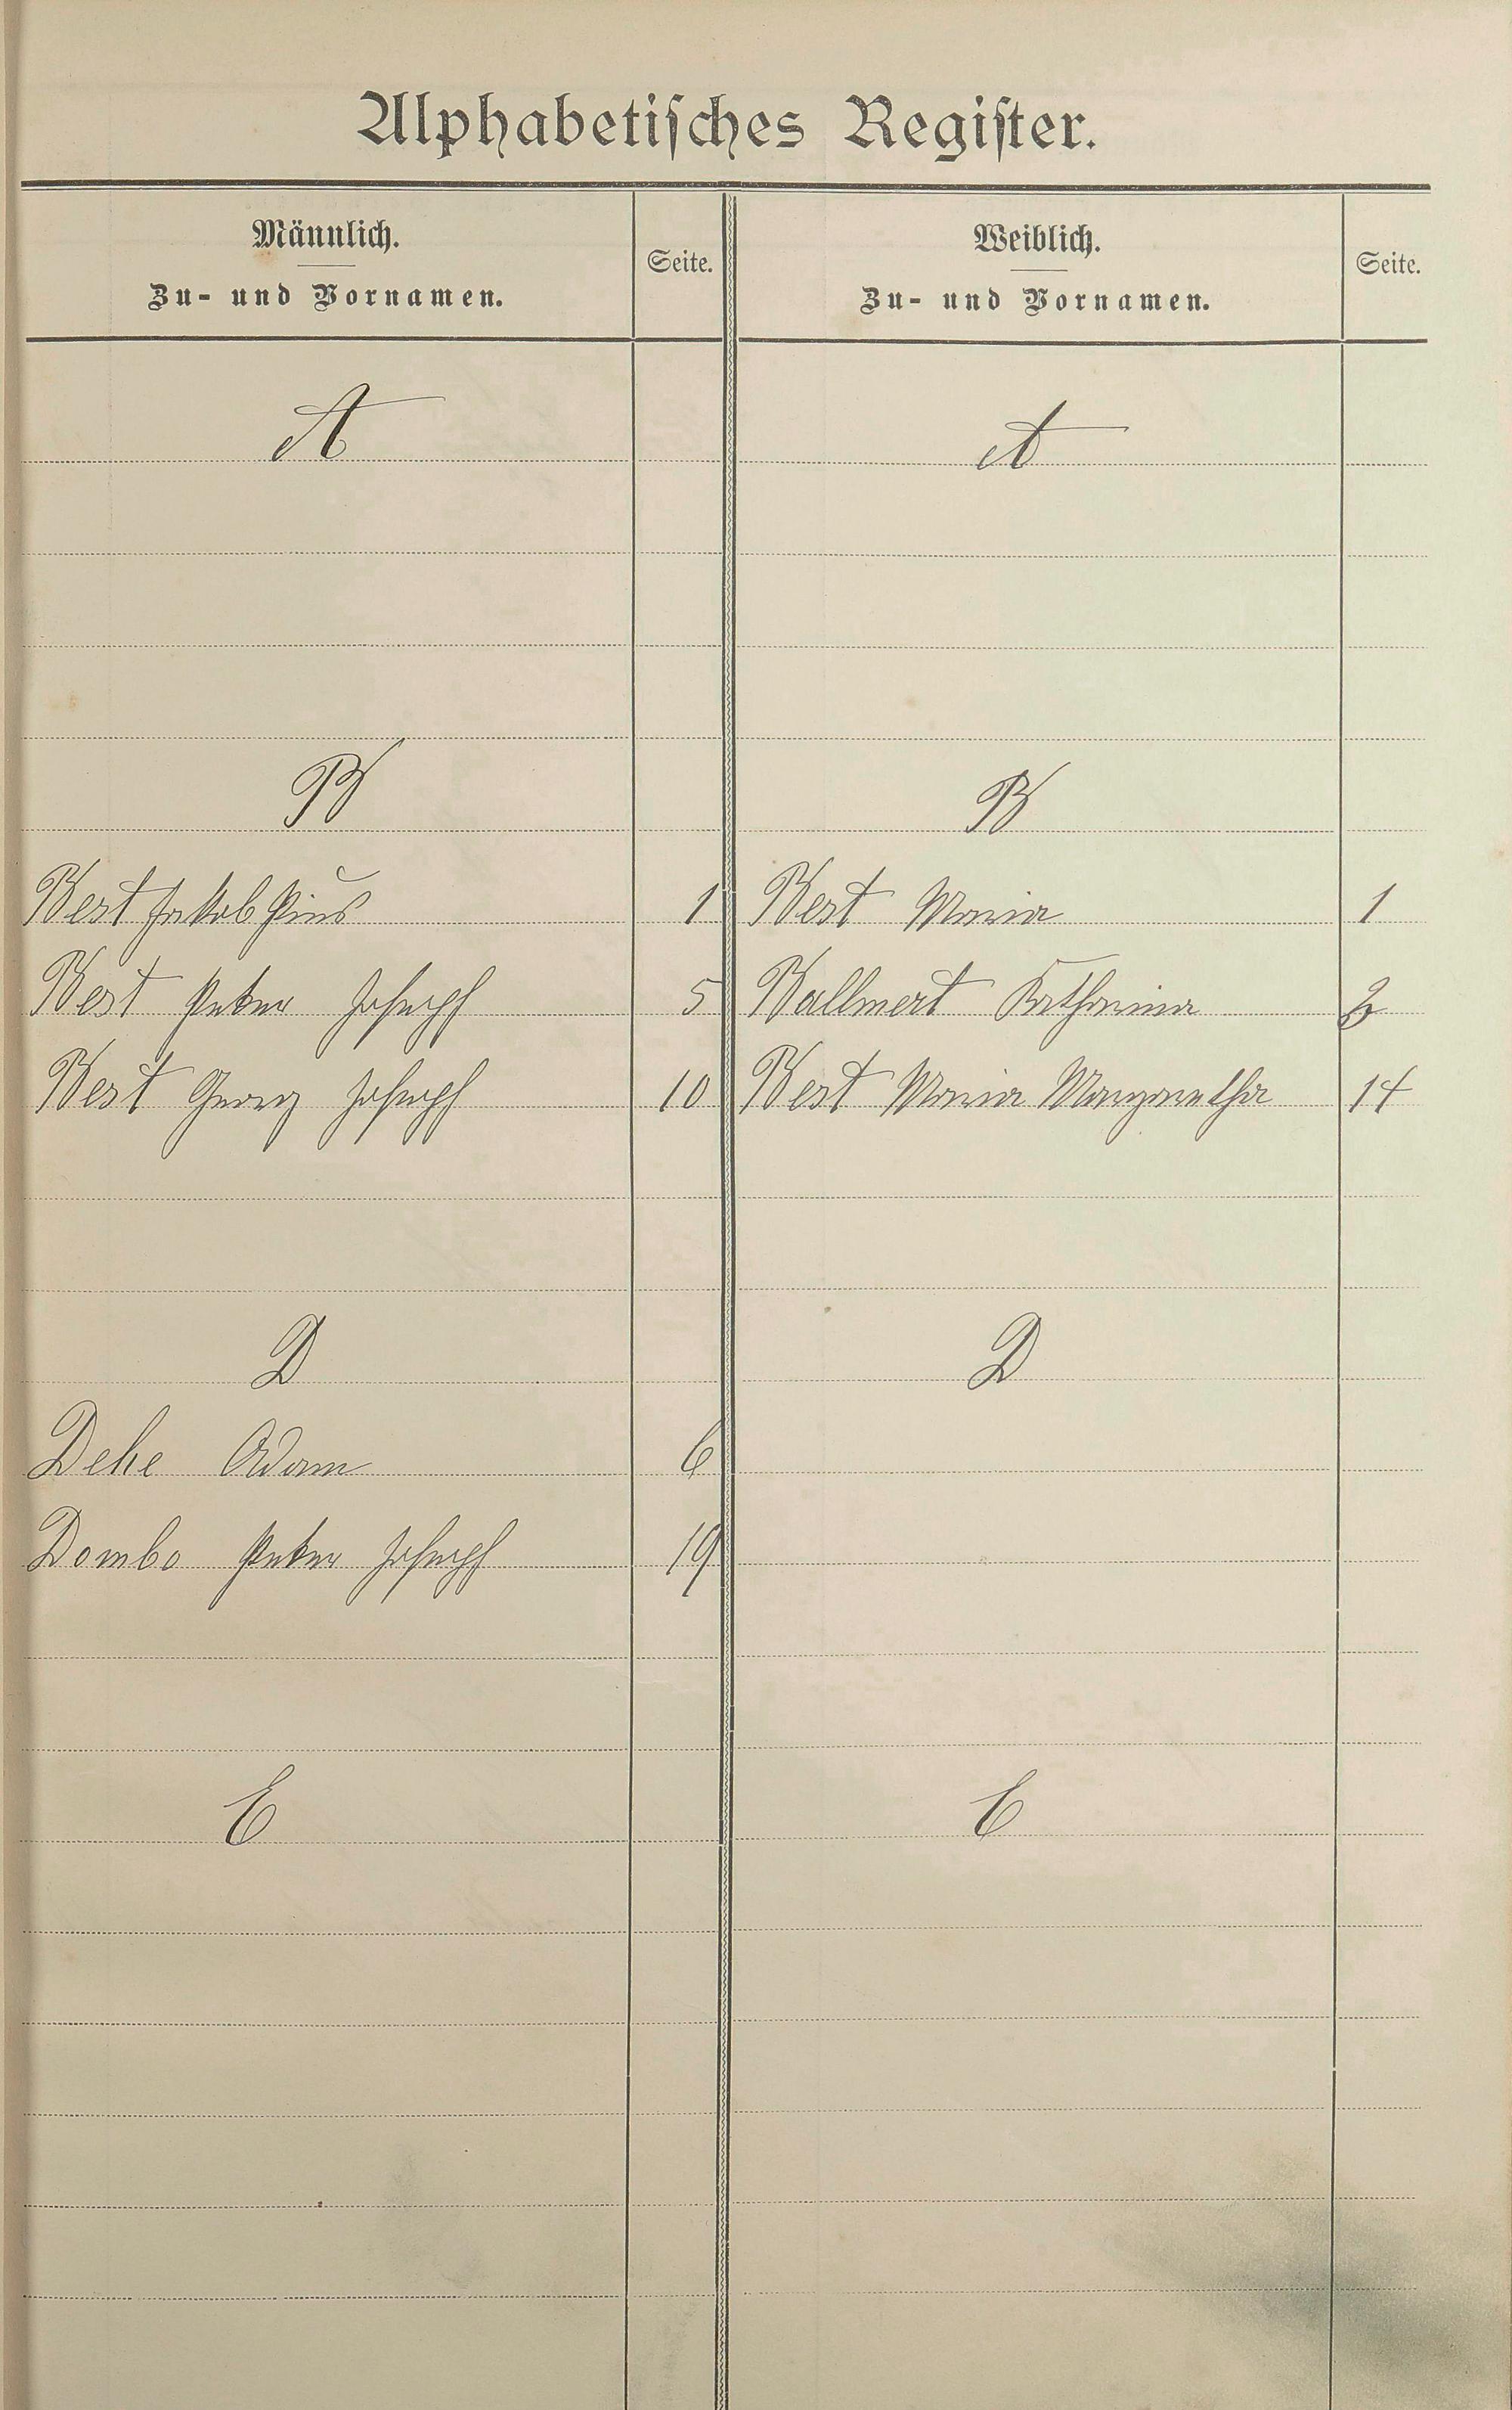 Alphabetisches Register.
Männlich.
Zu- und Vornamen.
Seite.
Weiblich.
Zu- und Vornamen.
Seite.
A
A
B
B
Best Jakob Pius 1 Best Maria 1
Best Peter Joseph 5 Ballmert Katharina
Best Georg Joseph 10 Best Maria Margaretha 14
D
D
Dehe Adam 6
Dombo Peter Joseph 19
E
E